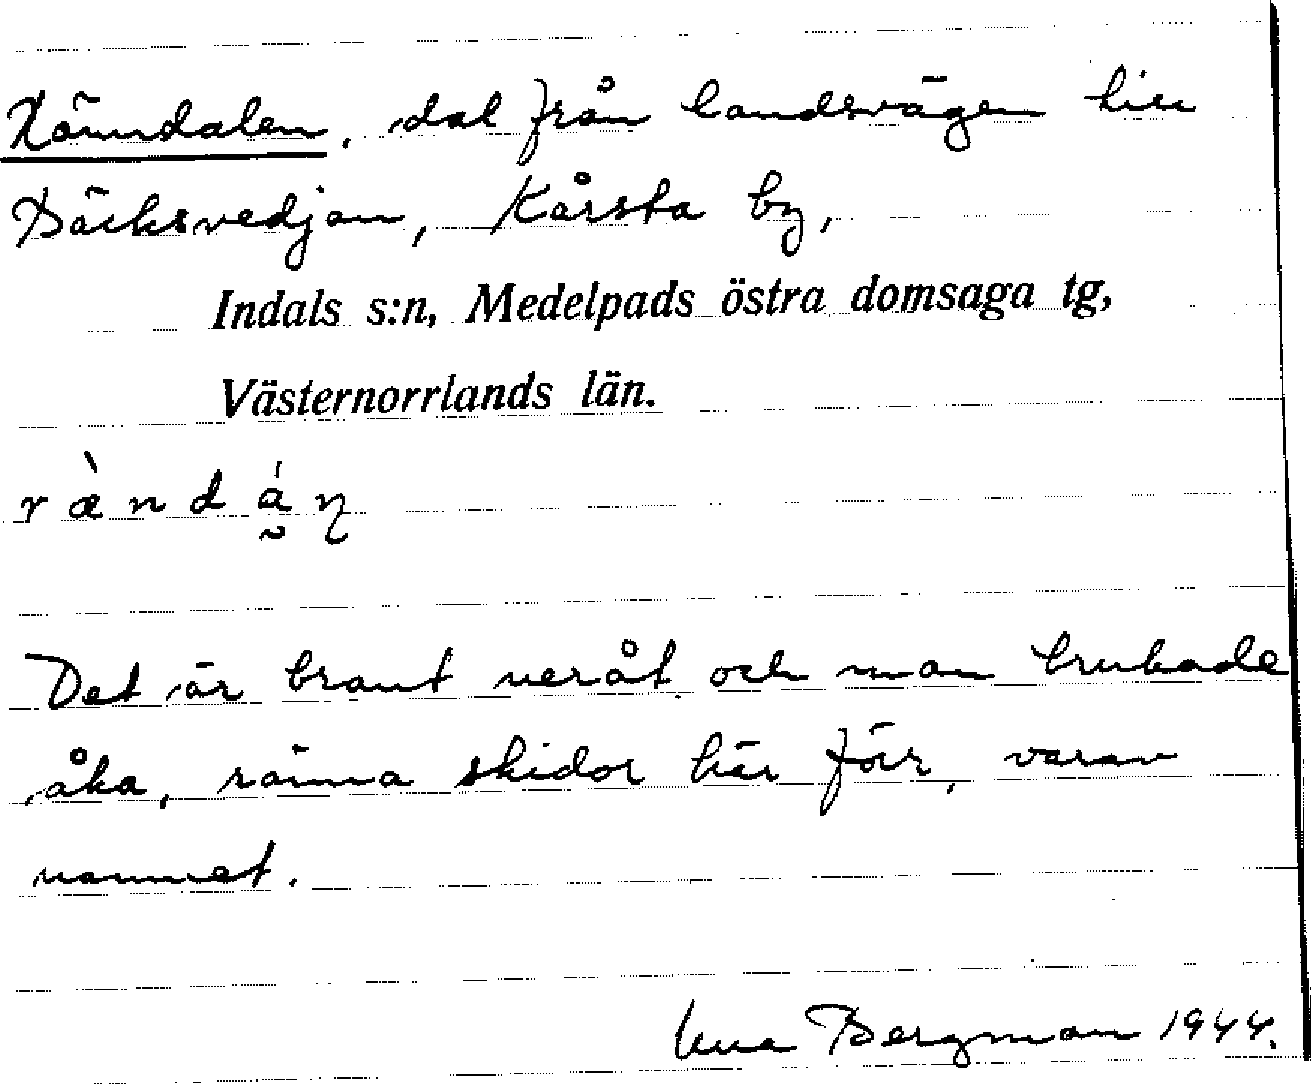 Ränndalen, dal från landsvägen till
Bäcksvedjan, Kårsta by,
Indals s:n, Medelpads östra domsaga tg,
Västernorrlands län.
r æ̀ n d á̰ n̥
Det är brant neråt och man brukade
åka, ränna skidor här förr, varav
namnet.
Una Bergman 1944.